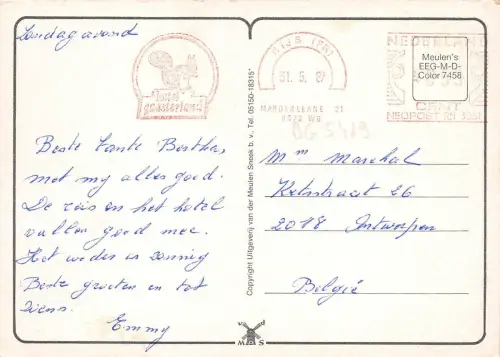 Zondag avond
Hotel
gaasterland
RIJS (FR)
31. 5. 87
MARDERLEANE 21
8572 WG
NEDERLAND
CENT
NEOPOST RN
Meulen's
EEG-M-D-
Color 7458
BG 5419
Beste Tante Bertha,
met my alles goed.
De reis en het hotel
vallen goed mee.
Het weder is zonnig
Beste groeten en tot
ziens.
Emmy
Copyright Uitgeverij van der Meulen Sneek b.v. Tel. 05150-18315*
Mm Marechal
Kerkstraat 26
2018 Antwerpen
België
M S